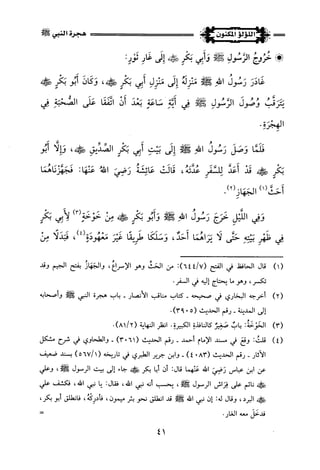 اللؤلؤ المكنون
هجرة النبي ﷺ
خُرُوجُ الرَّسُولِ ﷺ وَأَبِي بَكْرٍ ﷺ إِلَى غَارِ ثَوْرٍ:
غَادَرَ رَسُولُ اللهِ ﷺ مَنْزِلَهُ إِلَى مَنْزِلِ أَبِي بَكْرٍ ﷺ، وَكَانَ أَبُو بَكْرٍ
يَتَرَقَّبُ وُصُولَ الرَّسُولِ ﷺ فِي أَيَّةِ سَاعَةٍ بَعْدَ أَنْ اتَّفَقَا عَلَى الصُّحْبَةِ فِي
الهِجْرَةِ.
فَلَمَّا وَصَلَ رَسُولُ اللهِ ﷺ إِلَى بَيْتِ أَبِي بَكْرٍ الصِّدِّيقِ ﷺ، وَإِذَا أَبُو
بَكْرٍ ﷺ قَدْ أَعَدَّ لِلسَّفَرِ عُدَّتَهُ، قَالَتْ عَائِشَةُ رَضِيَ اللهُ عَنْهَا: فَجَهَّزْنَاهُمَا
أَحَثَّ(١) الجَهَازِ(٢).
وَفِي اللَّيْلِ خَرَجَ رَسُولُ اللهِ ﷺ وَأَبُو بَكْرٍ ﷺ مِنْ خَوْخَةٍ(٣) لِأَبِي بَكْرٍ
فِي ظَهْرِ بَيْتِهِ حَتَّى لَا يَرَاهُمَا أَحَدٌ، وَسَلَكَا طَرِيقًا غَيْرَ مَعْهُودَةٍ(٤)، فَبَدَلًا مِنْ
(١) قال الحافظ في الفتح (٦٤٤/٧): من الحَثِّ وهو الإسراعُ، والجَهَازُ بفتح الجيم وقد
تكسر، وهو ما يحتاج إليه في السفر.
(٢) أخرجه البخاري في صحيحه ـ كتاب مناقب الأنصار ـ باب هجرة النبي ﷺ وأصحابه
إلى المدينة ـ رقم الحديث (٣٩٠٥).
(٣) الخَوْخَةُ: بابٌ صَغِيرٌ كالنافذة الكبيرة. انظر النهاية (٨١/٢).
(٤) قلتُ: وقع في مسند الإمام أحمد ـ رقم الحديث (٣٠٦١) ـ والطحاوي في شرح مشكل
الآثار ـ رقم الحديث (٤٠٨٣) ـ وابن جرير الطبري في تاريخه (٥٦٧/١) بسند ضعيف
عن ابن عباس رَضِيَ اللهُ عَنْهُما قال: أن أبا بكر ﷺ جاء إلى بيت الرسول ﷺ، وعلي
ﷺ نائم على فِرَاشِ الرسول ﷺ، يحسب أنه نبي الله، فقال: يا نبي الله، فكشف علي
ﷺ البرد، وقال له: إن نبي الله ﷺ قد انطلق نحو بئر ميمون، فأدركْهُ، فانطلق أبو بكر،
فدخَلَ معه الغار.
=
٤١